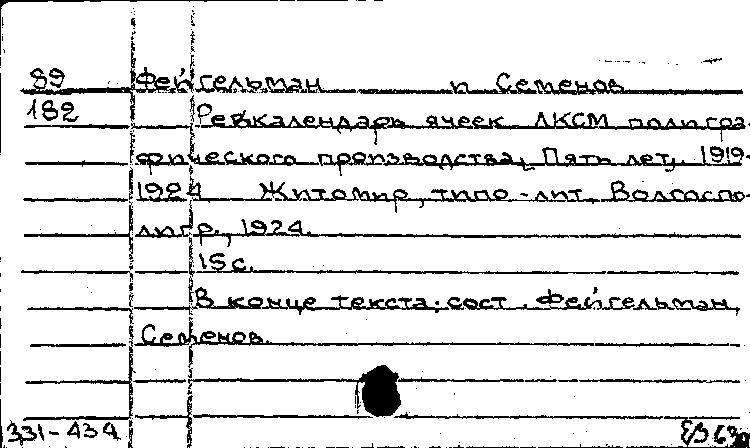 89 Фейгельман и Семенов
182 Рейкалендарь ячеек ЛКСМ полигра-
фического производства, Пять лет, 1919-
1924 Житомир, типо-лит. Волгаспо-
лигр., 1924.
15 с.
В конце текста: сост. Фейгельман,
Семенов.
331-434